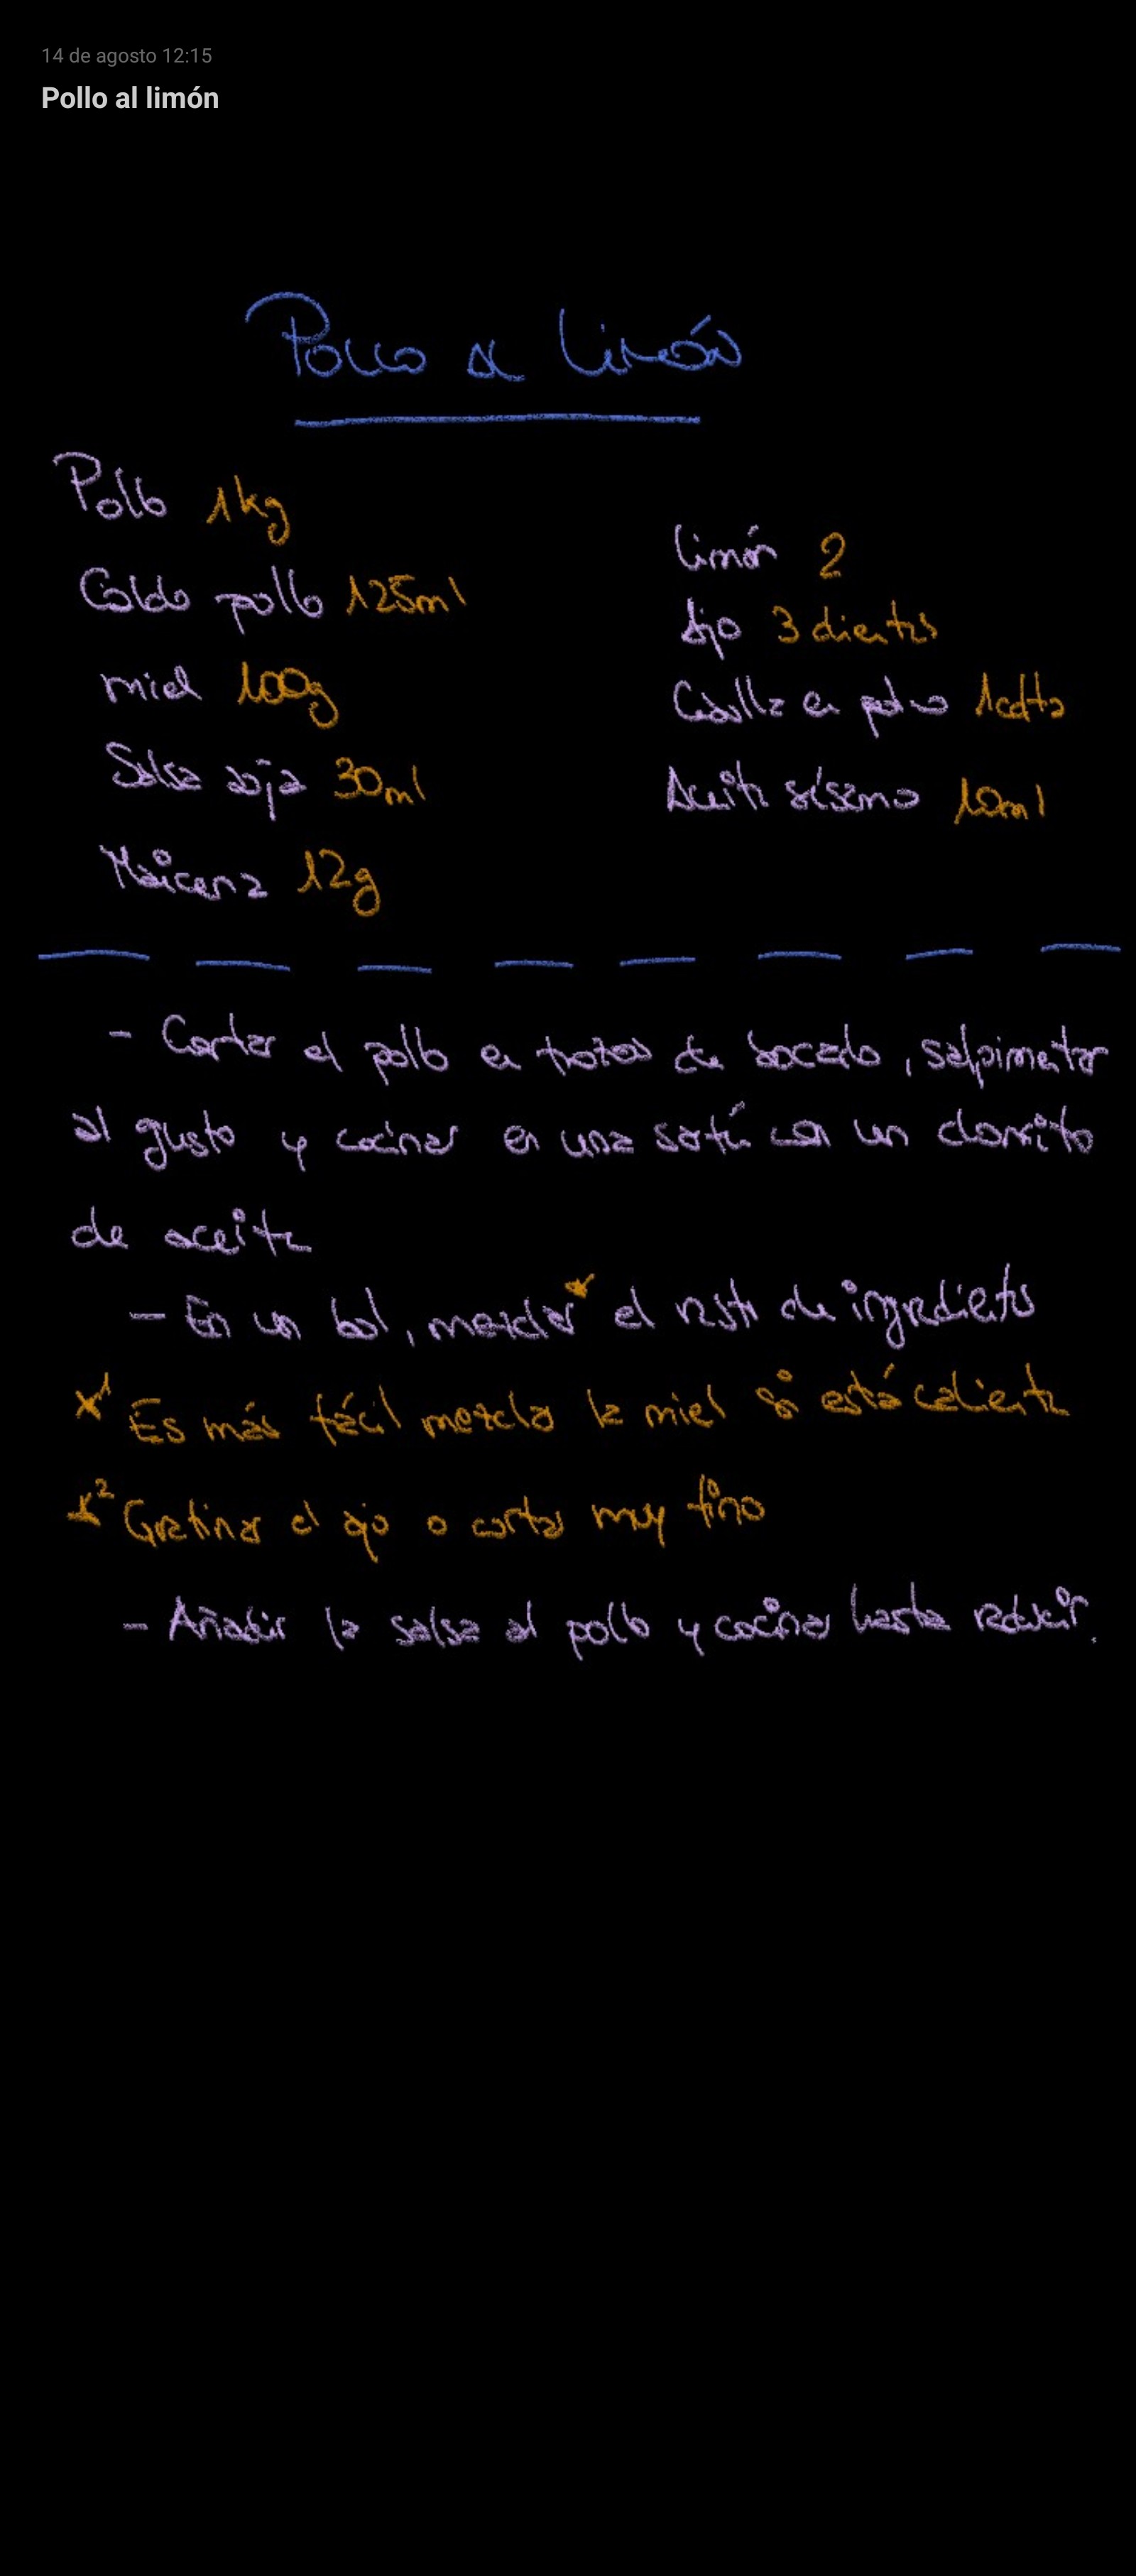 14 de agosto 12:15
Pollo al limón
Pollo al limón
Pollo 1kg
Caldo pollo 125ml
miel 100g
Salsa soja 30ml
Maicena 12g
limón 2
Ajo 3 dientes
Cebolla en polvo 1cdta
Aceite sésamo 10ml
- Cortar el pollo en trozos de bocado, salpimentar
al gusto y cocinar en una sartén con un chorrito
de aceite
- En un bol, mezclar* el resto de ingredientes
*1 Es más fácil mezclar la miel si está caliente
*2 Gratinar el ajo o cortar muy fino
- Añadir la salsa al pollo y cocinar hasta reducir.